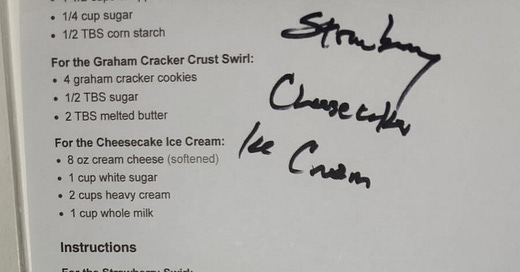 1/4 cup sugar
1/2 TBS corn starch
For the Graham Cracker Crust Swirl:
4 graham cracker cookies
1/2 TBS sugar
2 TBS melted butter
For the Cheesecake Ice Cream:
8 oz cream cheese (softened)
1 cup white sugar
2 cups heavy cream
1 cup whole milk
Instructions
For the Strawberry Swirl:
Strawberry
Cheesecake
Ice Cream